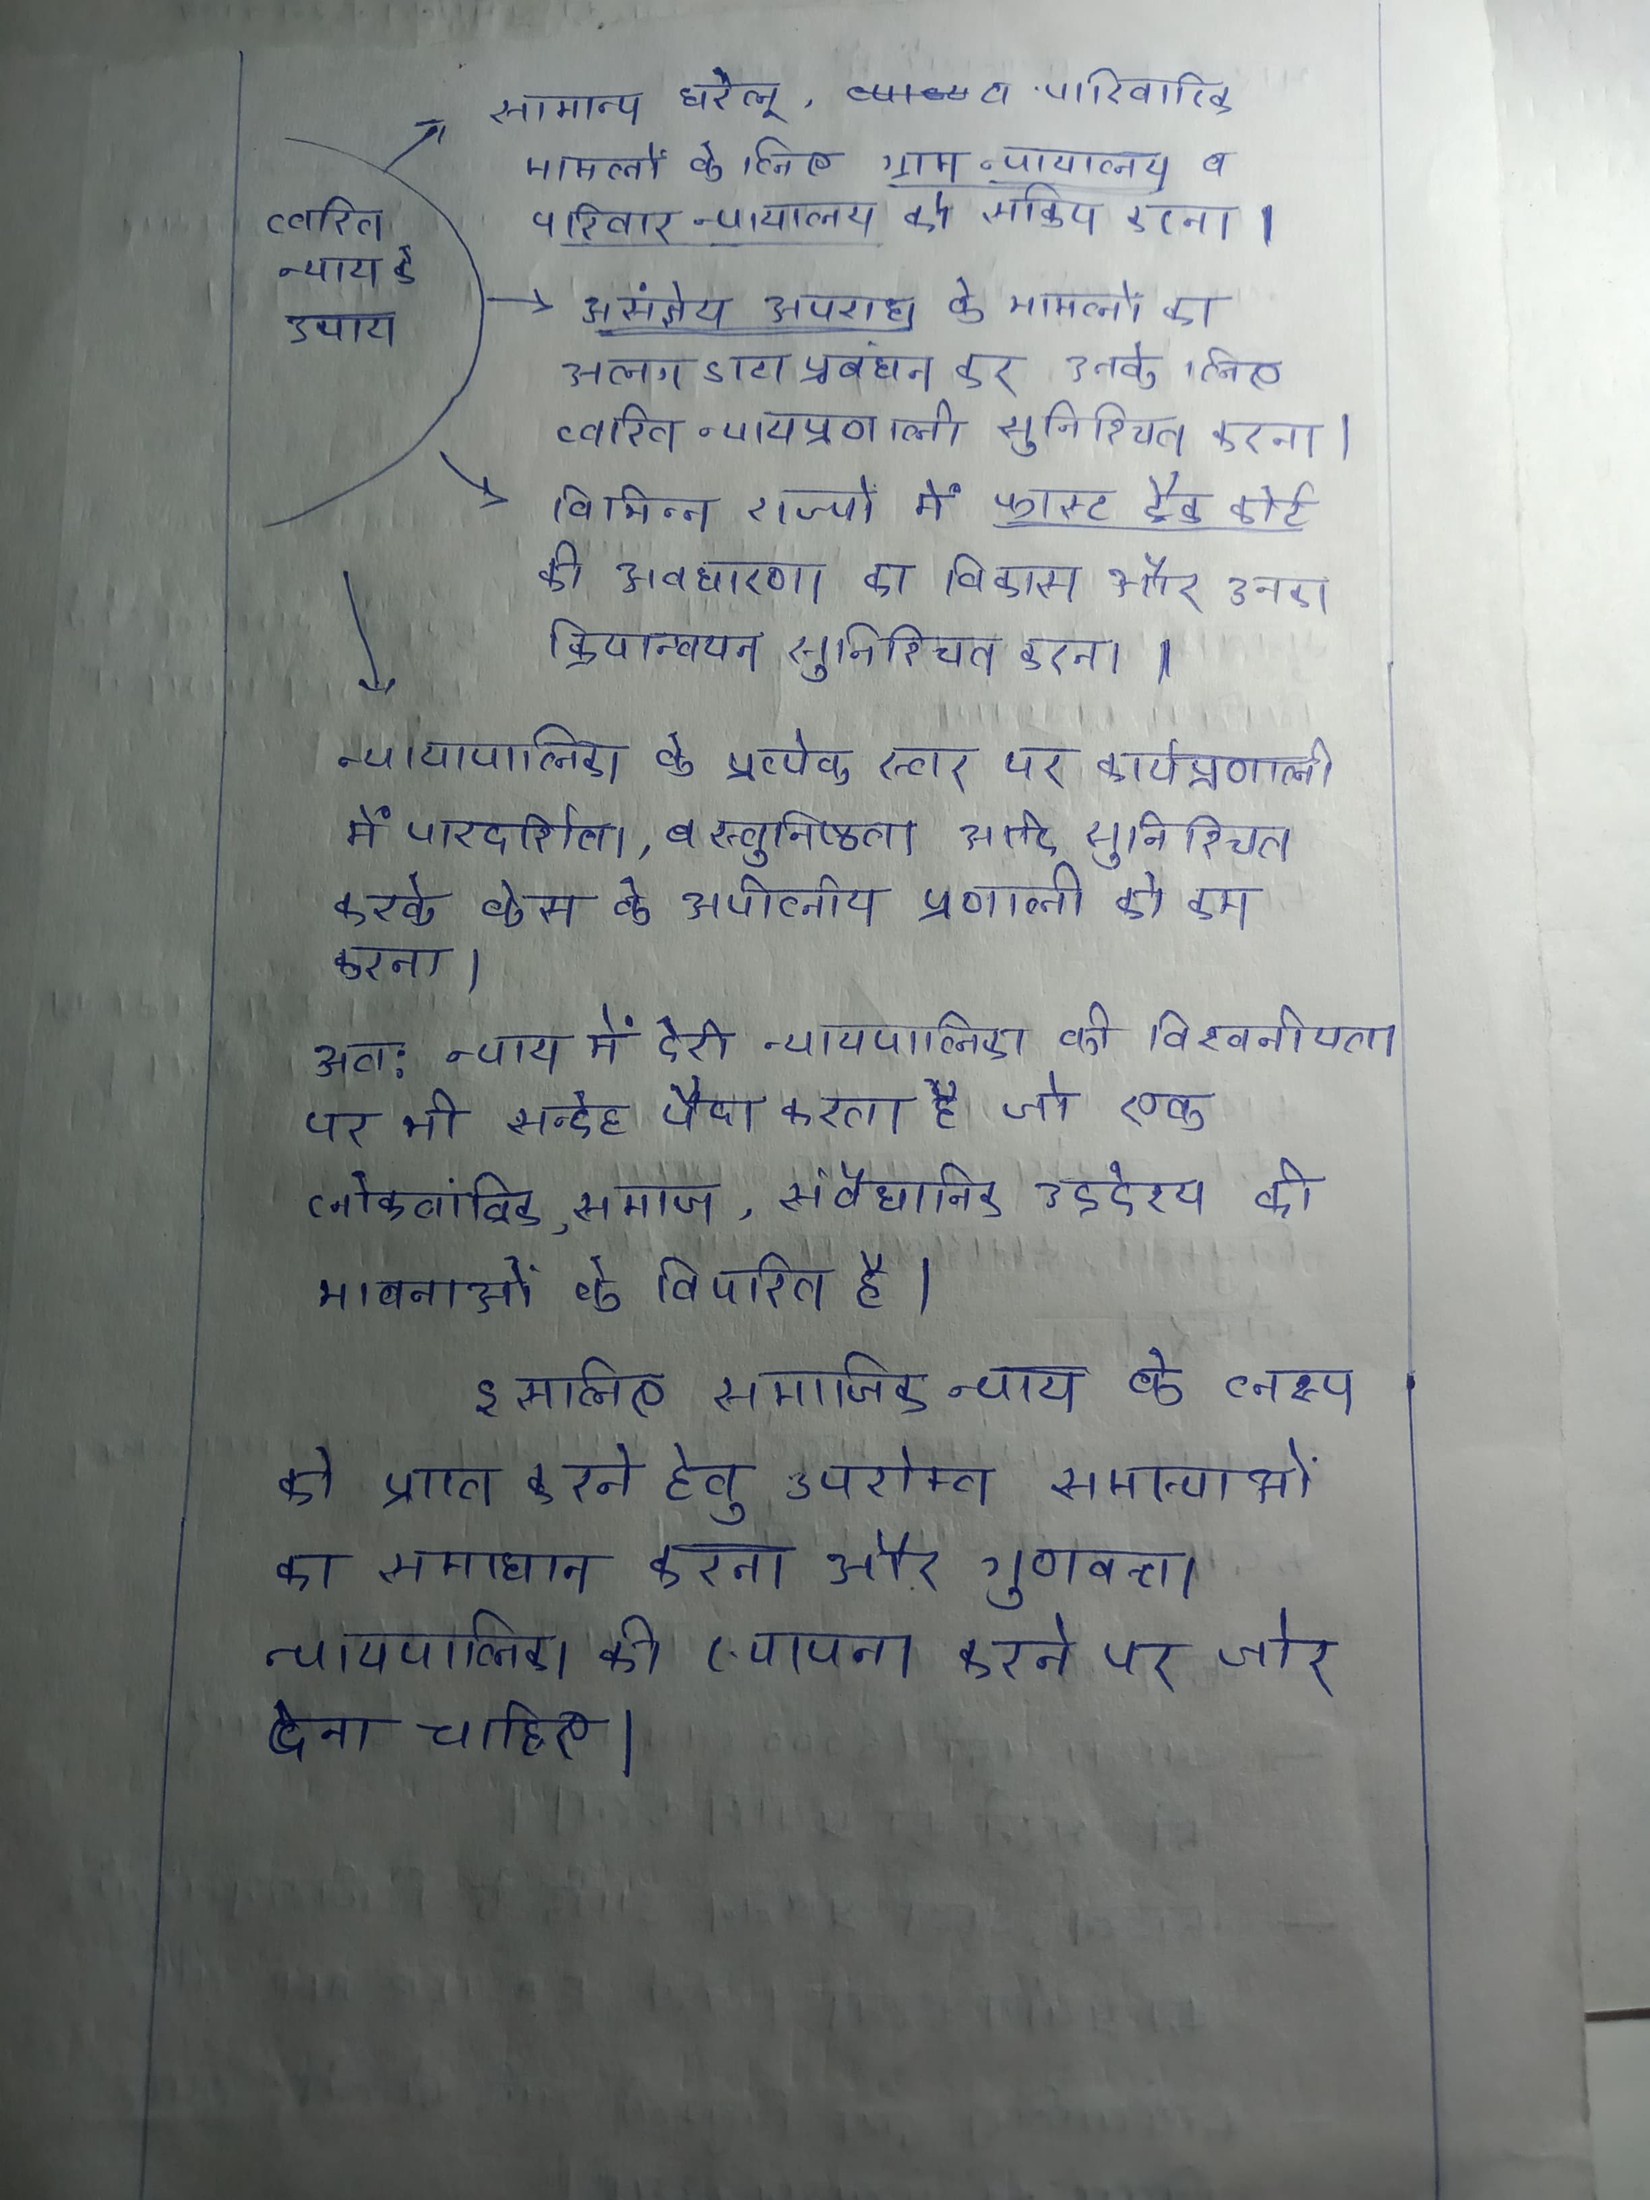 त्वरित
न्याय के
उपाय
सामान्य घरेलू, पारिवारिक
मामलों के लिए ग्राम न्यायालय व
परिवार न्यायालय को सक्रिय करना।
असंज्ञेय अपराध के मामलों का
अलग डाटा प्रबंधन कर उनके लिए
त्वरित न्यायप्रणाली सुनिश्चित करना।
विभिन्न राज्यों में फास्ट ट्रैक कोर्ट
की अवधारणा का विकास और उनका
क्रियान्वयन सुनिश्चित करना।
न्यायापालिका के प्रत्येक स्तर पर कार्यप्रणाली
में पारदर्शिता, वस्तुनिष्ठता आदि सुनिश्चित
करके केस के अपीलीय प्रणाली को कम
करना।
अतः न्याय में देरी न्यायपालिका की विश्वनीयता
पर भी सन्देह पैदा करता है जो एक
लोकतांत्रिक, समाज, संवैधानिक उद्देश्य की
भावनाओं के विपरित है।
इसलिए समाजिक न्याय के लक्ष्य
को प्राप्त करने हेतु उपरोक्त समास्याओं
का समाधान करना और गुणवत्ता
न्यायपालिका की स्थापना करने पर जोर
देना चाहिए।